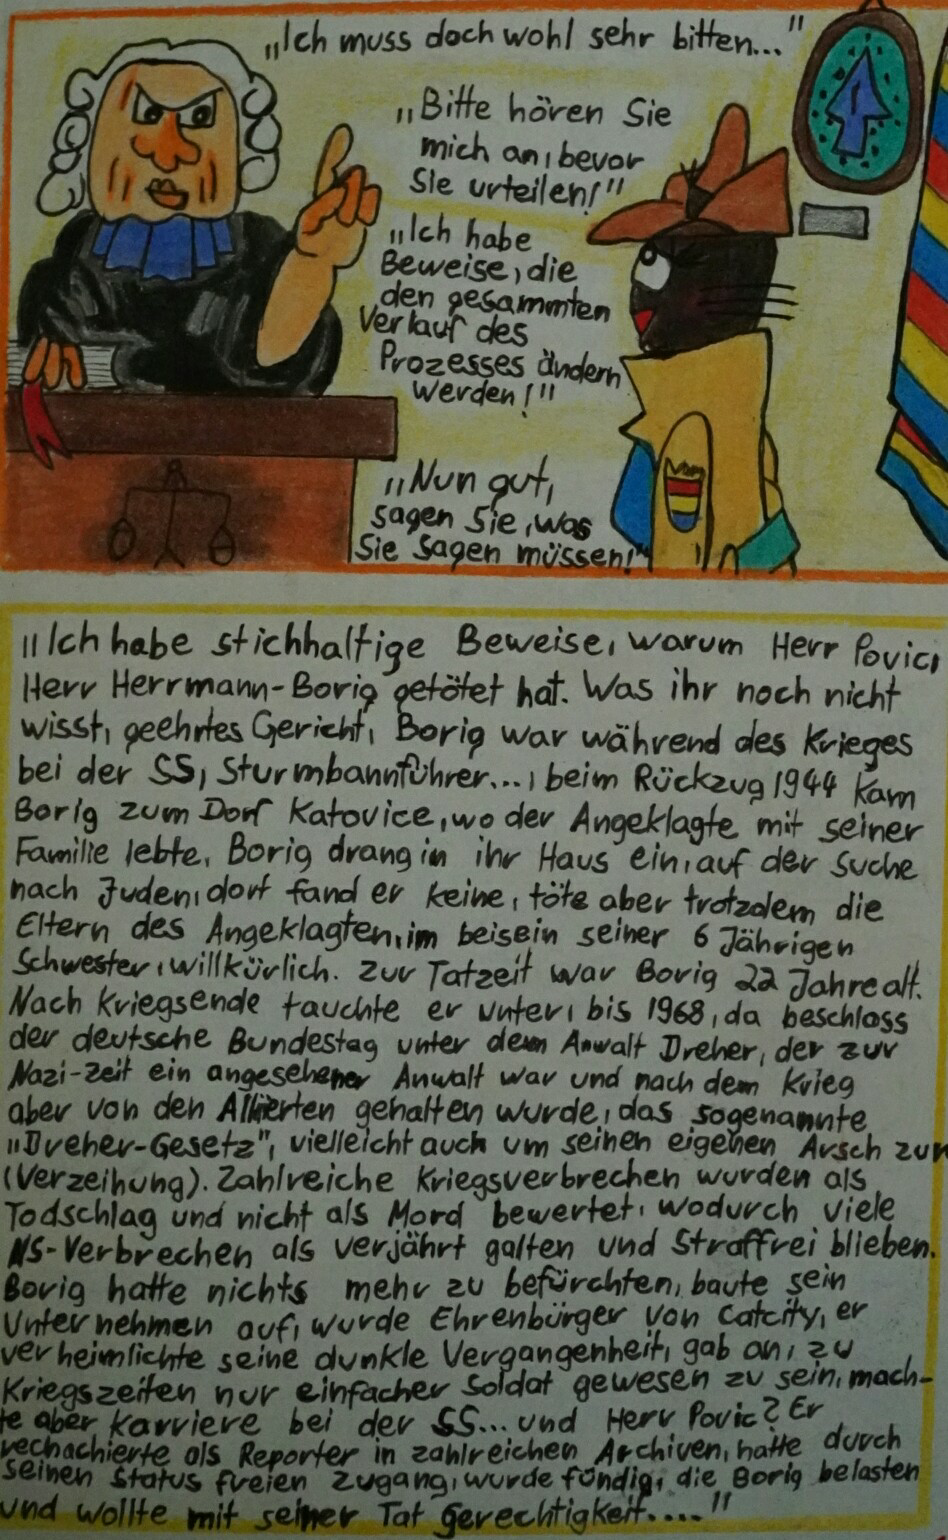 „Ich muss doch wohl sehr bitten..."
„Bitte hören Sie
mich an, bevor
Sie urteilen!"
„Ich habe
Beweise, die
den gesammten
Verlauf des
Prozesses ändern
werden!"
„Nun gut,
sagen Sie, was
Sie sagen müssen!"
„Ich habe stichhaltige Beweise, warum Herr Povic,
Herr Herrmann-Borig getötet hat. Was ihr noch nicht
wisst, geehrtes Gericht, Borig war während des Krieges
bei der SS, Sturmbannführer..., beim Rückzug 1944 kam
Borig zum Dorf Katovice, wo der Angeklagte mit seiner
Familie lebte, Borig drang in ihr Haus ein, auf der suche
nach Juden, dort fand er keine, töte aber trotzdem die
Eltern des Angeklagten, im beisein seiner 6 Jährigen
Schwester, willkürlich. Zur Tatzeit war Borig 22 Jahre alt.
Nach Kriegsende tauchte er unter, bis 1968, da beschloss
der deutsche Bundestag unter dem Anwalt Dreher, der zur
Nazi-Zeit ein angesehener Anwalt war und nach dem Krieg
aber von den Alliierten gehalten wurde, das sogenannte
„Dreher-Gesetz", vielleicht auch um seinen eigenen Arsch zur
(Verzeihung). Zahlreiche Kriegsverbrechen wurden als
Todschlag und nicht als Mord bewertet, wodurch viele
NS-Verbrechen als verjährt galten und Straffrei blieben.
Borig hatte nichts mehr zu befürchten, baute sein
Unternehmen auf, wurde Ehrenbürger von Catcity, er
verheimlichte seine dunkle Vergangenheit, gab an, zu
Kriegszeiten nur einfacher Soldat gewesen zu sein, mach-
te aber Karriere bei der SS... und Herr Povic? Er
rechachierte als Reporter in zahlreichen Archiven, hatte durch
seinen Status freien Zugang, wurde fündig, die Borig belasten
und wollte mit seiner Tat Gerechtigkeit...."